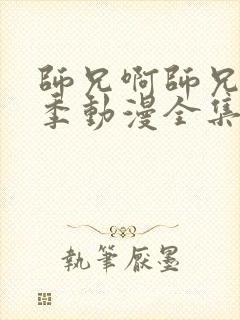 師兄啊師兄
季動漫全集
執筆厭墨